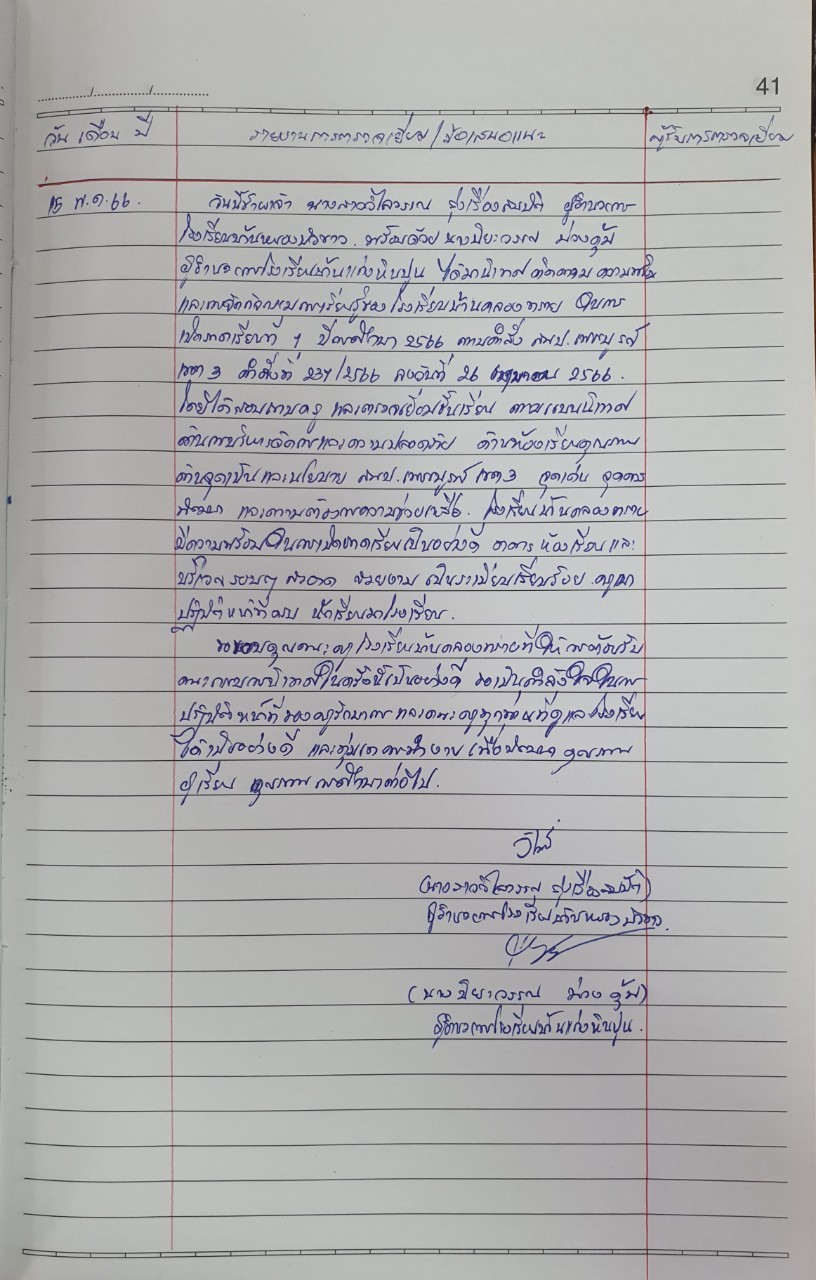 41
วัน เดือน ปี รายงานการตรวจเยี่ยม/ข้อเสนอแนะ ผู้รับการตรวจเยี่ยม
15 พ.ค. 66. วันนี้ข้าพเจ้า นางสาววิไลวรรณ รุ่งเรืองสมบัติ ผู้อำนวยการ
โรงเรียนบ้านหนองบัวขาว พร้อมด้วย นางปิยะวรรณ ม่วงคุ้ม
ผู้อำนวยการโรงเรียนบ้านแก่งหินปูน ได้มานิเทศ ติดตาม ความพร้อม
และการจัดกิจกรรมการเรียนรู้ของ โรงเรียนบ้านคลองทราย ในการ
เปิดภาคเรียนที่ 1 ปีการศึกษา 2566 ตามคำสั่ง สพป.เพชรบูรณ์
เขต 3 คำสั่งที่ 237/2566 ลงวันที่ 26 เมษายน 2566.
โดยได้สอบถามครู และตรวจเยี่ยมชั้นเรียน ตามแบบนิเทศ
ด้านการบริหารจัดการและความปลอดภัย ด้านห้องเรียนคุณภาพ
ด้านจุดเน้นและนโยบาย สพป.เพชรบูรณ์ เขต 3 จุดเด่น จุดควร
พัฒนา และความต้องการความช่วยเหลือ. โรงเรียนบ้านคลองทราย
มีความพร้อมในการเปิดภาคเรียนเป็นอย่างดี อาคาร ห้องเรียน และ
บริเวณรอบๆ สะอาด สวยงาม เป็นระเบียบเรียบร้อย ครูมา
ปฏิบัติหน้าที่ครบ นักเรียนมาโรงเรียน.
ขอขอบคุณคณะครู โรงเรียนบ้านคลองทรายที่ให้การต้อนรับ
คณะกรรมการนิเทศในครั้งนี้เป็นอย่างดี ขอเป็นกำลังใจในการ
ปฏิบัติหน้าที่ของครูรักษาการ และคณะครูทุกท่านที่ดูแลโรงเรียน
ได้เป็นอย่างดี และทุ่มเทการทำงาน เพื่อพัฒนา คุณภาพ
ผู้เรียน คุณภาพการศึกษาต่อไป.
(นางสาววิไลวรรณ รุ่งเรืองสมบัติ)
ผู้อำนวยการโรงเรียนบ้านหนองบัวขาว.
(นางปิยะวรรณ ม่วงคุ้ม)
ผู้อำนวยการโรงเรียนบ้านแก่งหินปูน.